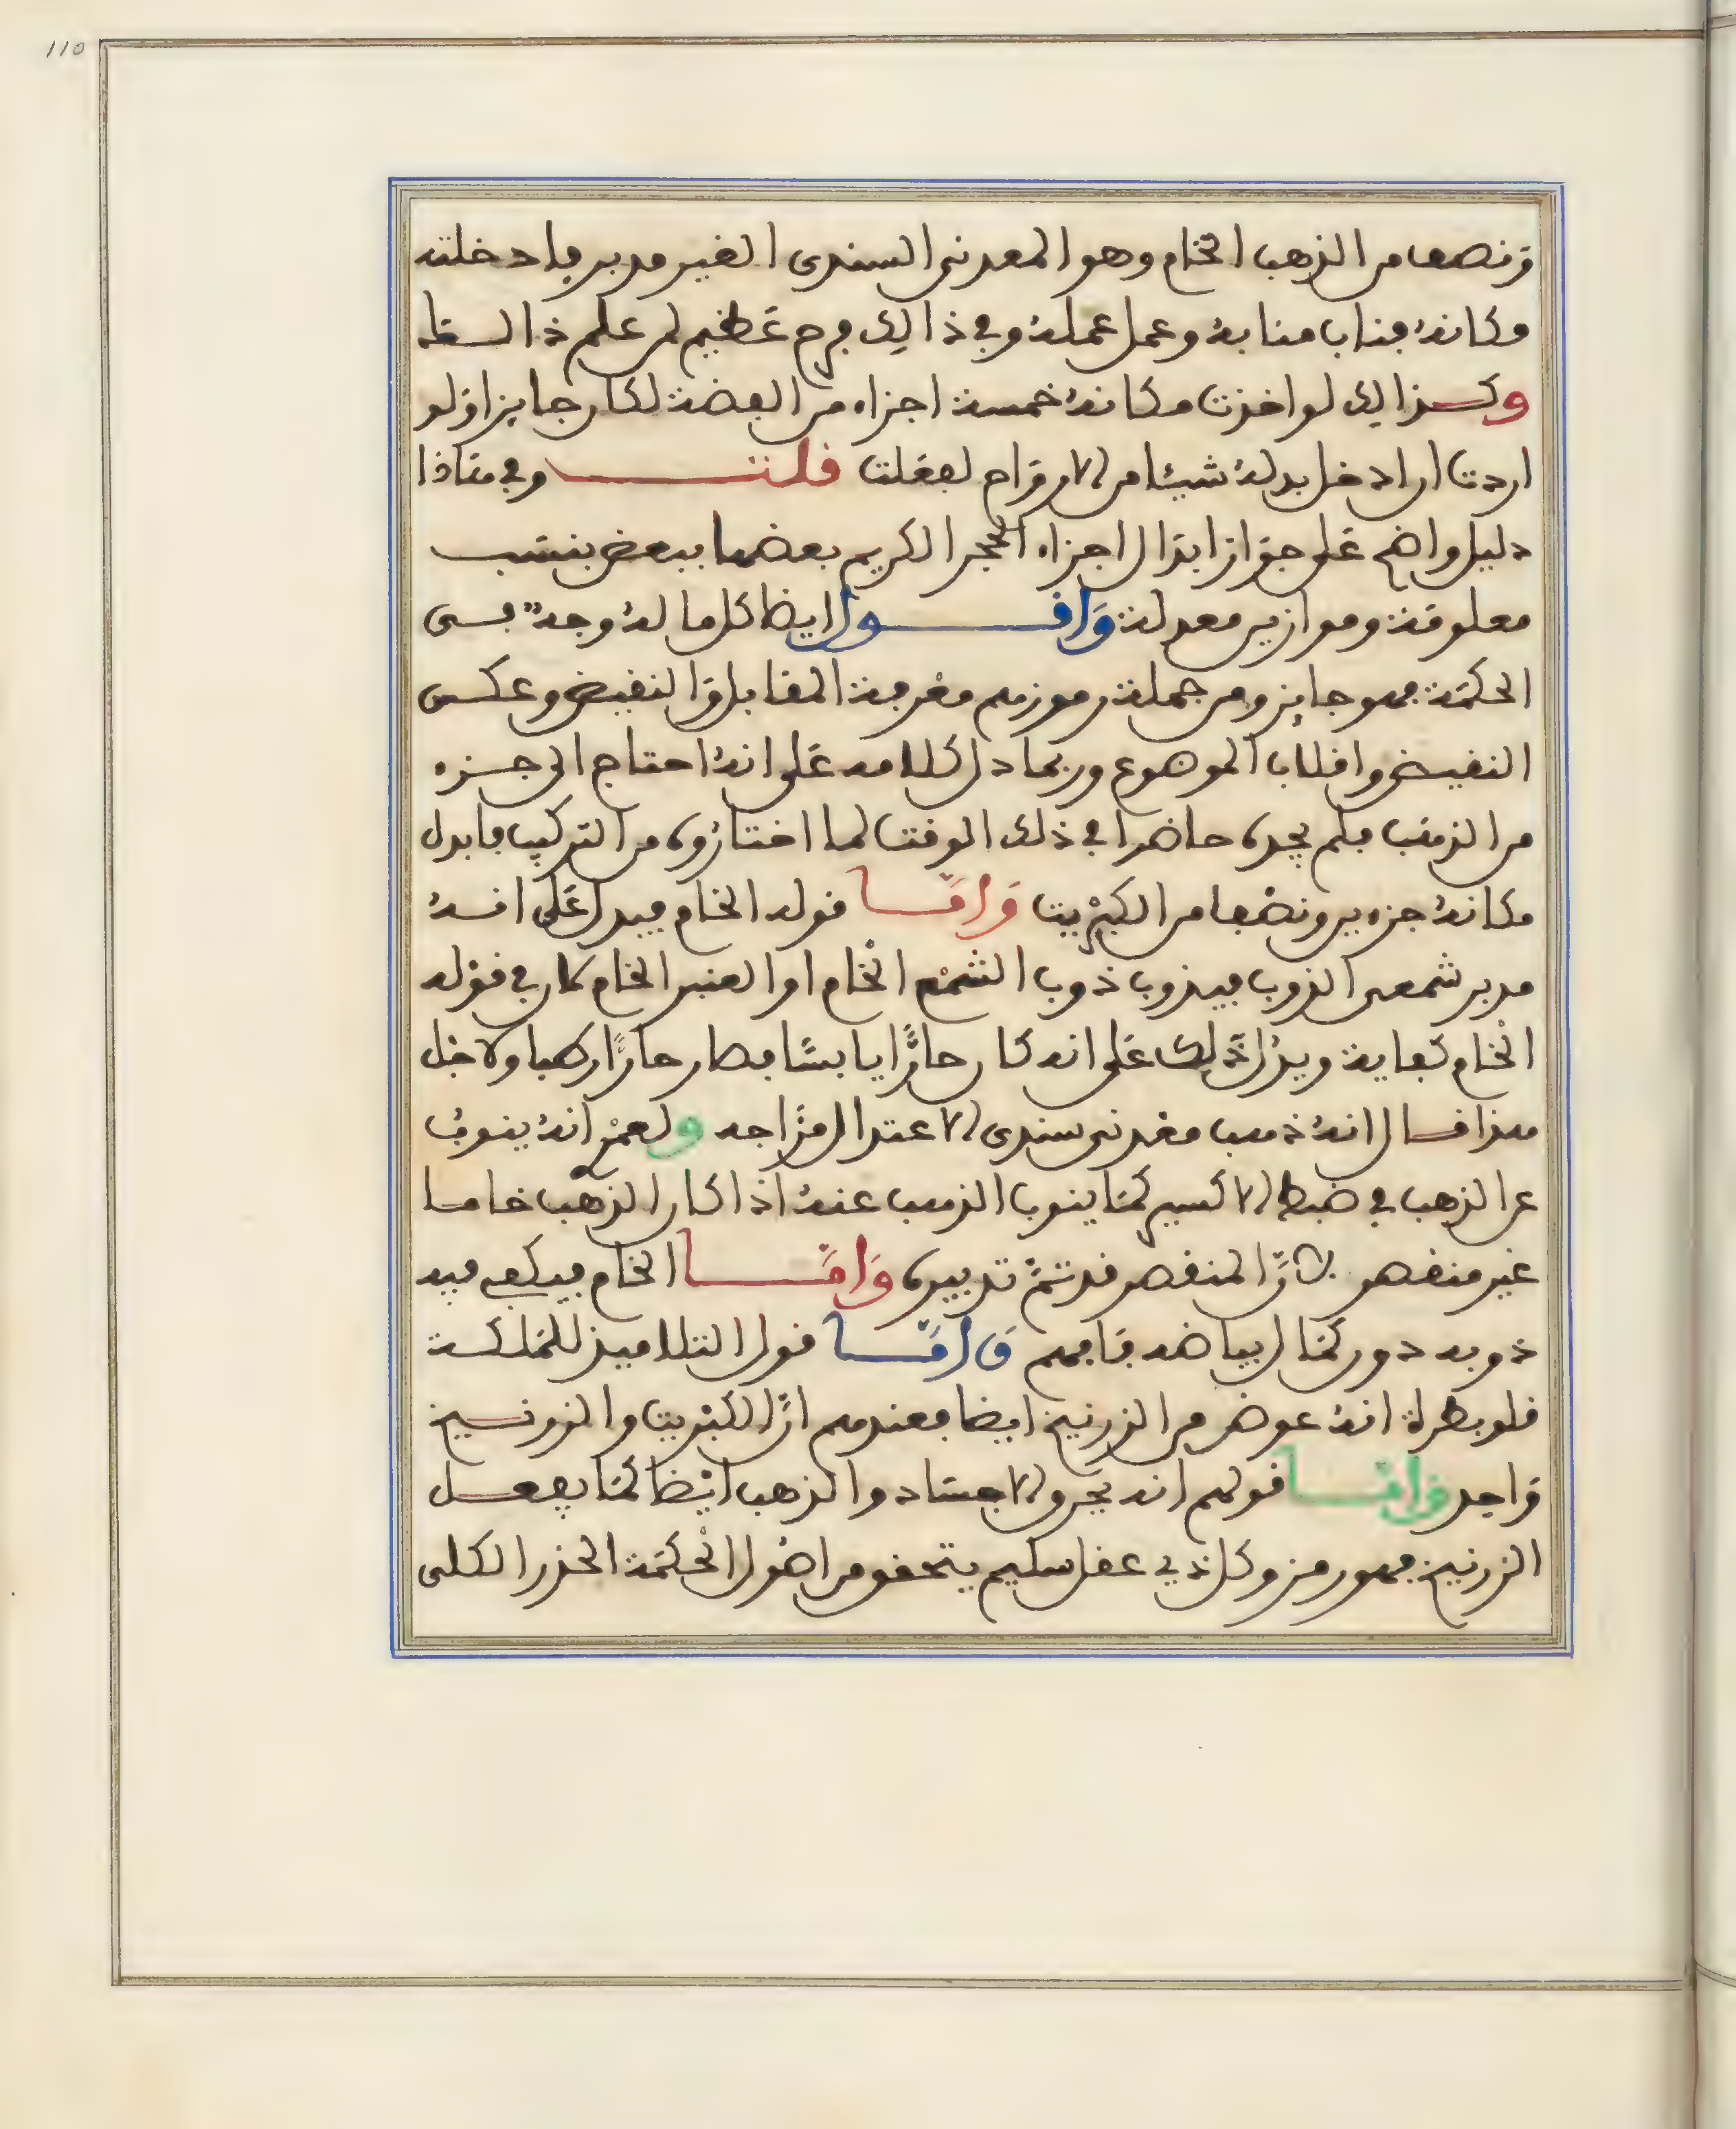 110
ونصف من الذهب الخام وهو المعدني السندى الغير مدبر فادخلته
مكانه فناب منابه وعمل عمله وفي ذالك فرح عظيم لمن علم ذا السقا
وكذالك لو اخذت مكانه خمسة اجزاء من الفضة لكان جايز اولو
اردت ان ادخل بدله شيئا من الارواح لفعلت قلت وفي هاذا
دليل واضح على جواز ابدال اجزاء الحجر الكريم بعضها ببعض بنسب
معلومة وموازين معدلة واقول ايضا كل ما له وجه بسى
الحكمة فهو جايز ومن جملة رموزهم معرفة المقابل والنقيض وعكس
النقيض واقلاب الموضوع وربما دل كلامه على انه احتاج الى جزء
من الذهب فلم يجده حاضرا في ذلك الوقت لما اختاروه من التركيب فابدل
مكانه جزءين ونصفا من الكبريت واما قوله الخام فيدل على انه
مدبر شمعى الذوب فيذوب ذوب الشمع الخام او العنبر الخام كان في قوله
الخام كفاية ويدل ذلك على انه كان حارا يابسا فصار حارا رطبا ولاجل
هذا قال انه ذهب معدني سندى لاعتدال مزاجه ولعمرى انه ينوب
عن الذهب في ضبط الاكسير كما ينوب الذهب عنه اذا كان الذهب خاما
غير منقض لان المنقض قد تم تدبيره واما الخام فيكفى فيه
ذوبه دون كمال بياضه فافهم واما قول التلاميذ للملكة
قلوبطرة انه عوض من الزرنيخ ايضا فعندهم ان الكبريت والزرنيخ
واحد واما قولهم انه يحرق الاجساد والذهب ايضا كما يفعل
الزرنيخ فهو رمز وكل ذي عقل سليم يتحقق من اهل الحكمة الحذر الكلى